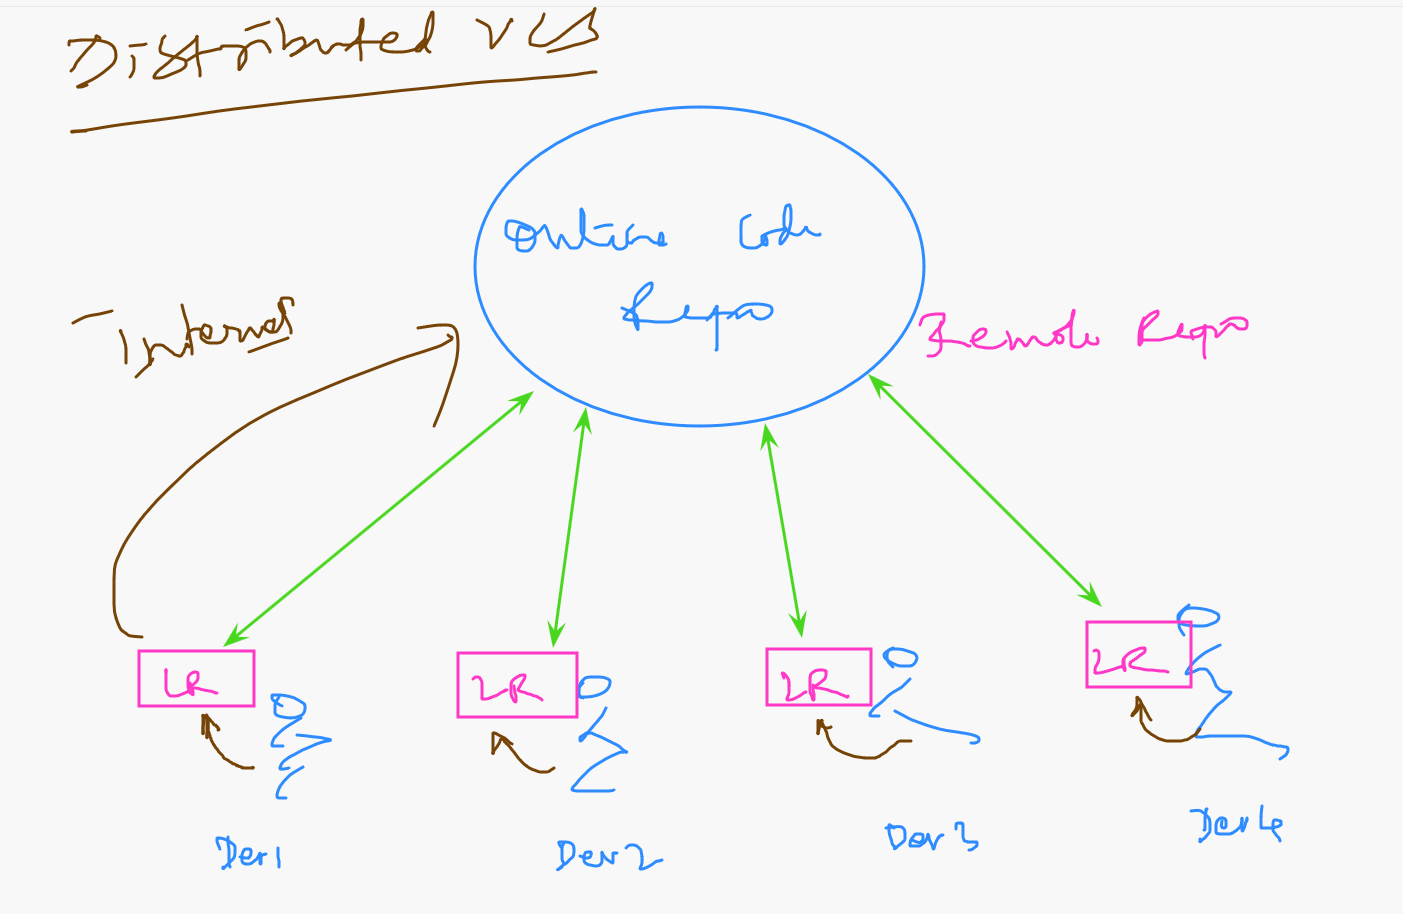 Distributed VCS
Online Code
Repo
Internet
Remote Repo
LR
LR
LR
LR
Dev1
Dev2
Dev3
Dev4